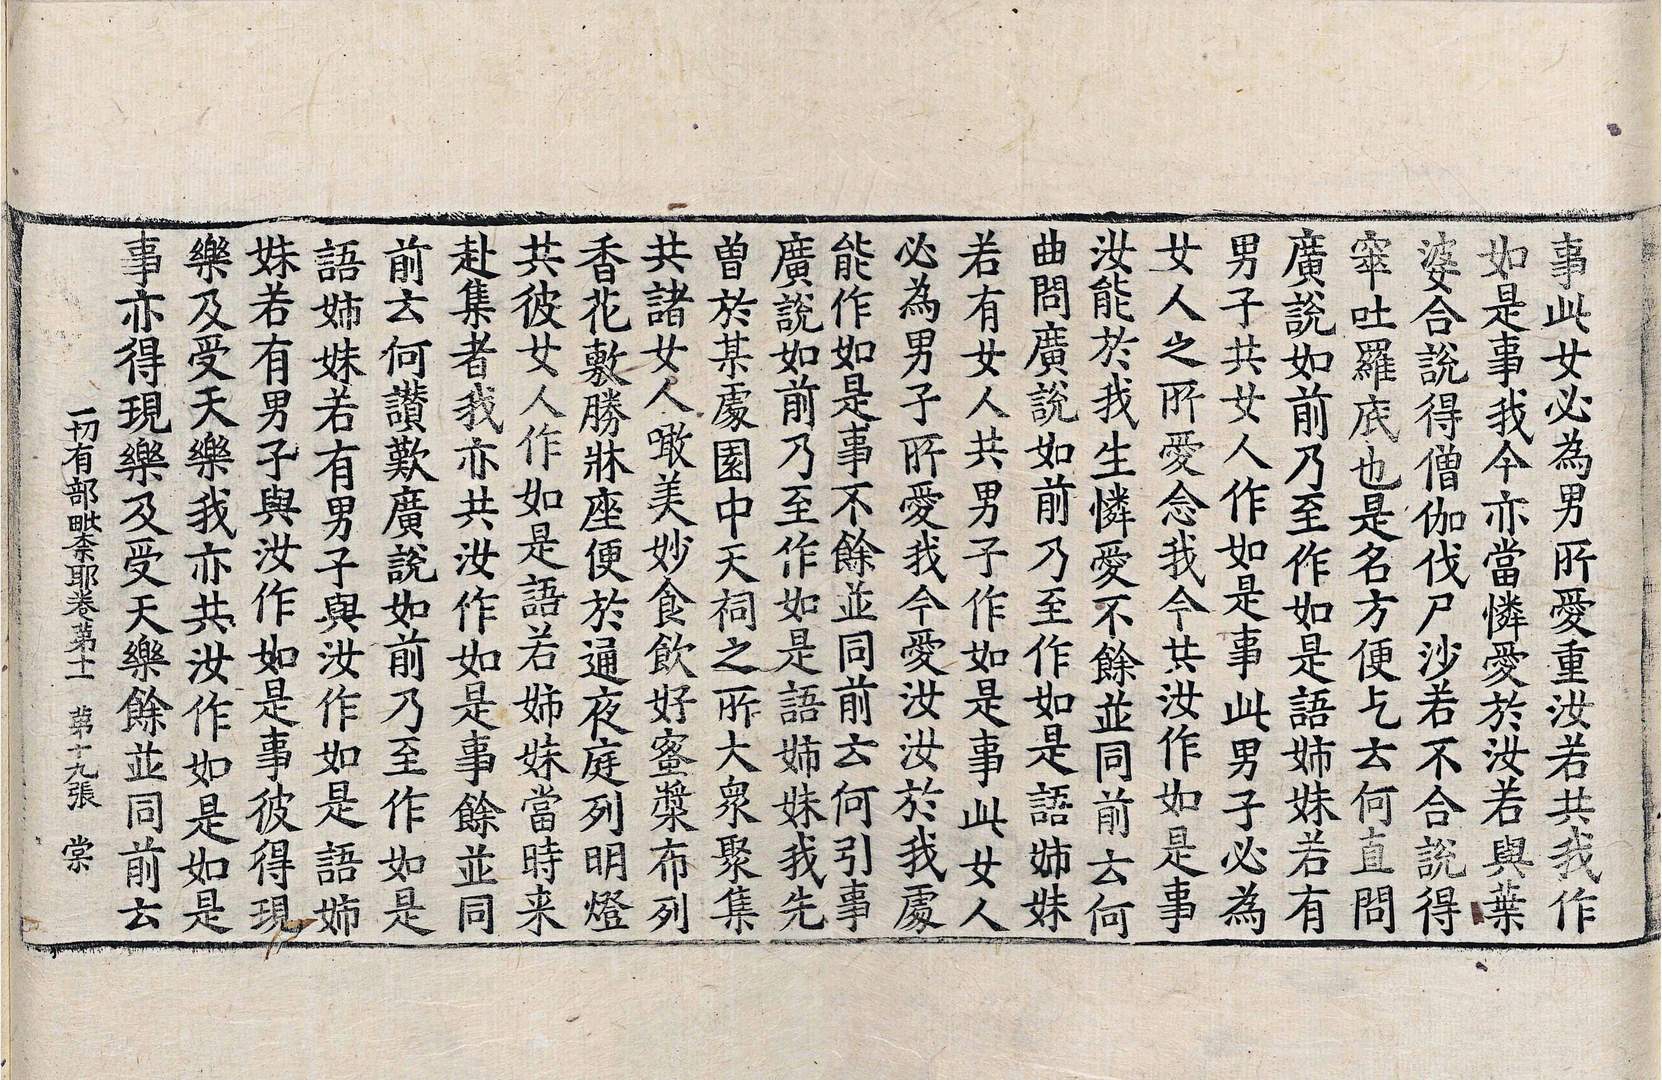 事此女必為男所愛重汝若共我作
如是事我今亦當憐愛於汝若與葉
婆合說得僧伽伐尸沙若不合說得
窣吐羅底也是名方便乞云何直問
廣說如前乃至作如是語姉妹若有
男子共女人作如是事此男子必為
女人之所愛念我今共汝作如是事
汝能於我生憐愛不餘並同前云何
曲問廣說如前乃至作如是語姉妹
若有女人共男子作如是事此女人
必為男子所愛我今愛汝汝於我處
能作如是事不餘並同前云何引事
廣說如前乃至作如是語姉妹我先
曾於某處園中天祠之所大衆聚集
共諸女人噉美妙食飲好蜜漿布列
香花敷勝牀座便於通夜庭列明燈
共彼女人作如是語若姉妹當時来
赴集者我亦共汝作如是事餘並同
前云何讃歎廣說如前乃至作如是
語姉妹若有男子與汝作如是語姉
妹若有男子與汝作如是事彼得現
樂及受天樂我亦共汝作如是如是
事亦得現樂及受天樂餘並同前云
一切有部毗奈耶卷第十一 第十九張 棠